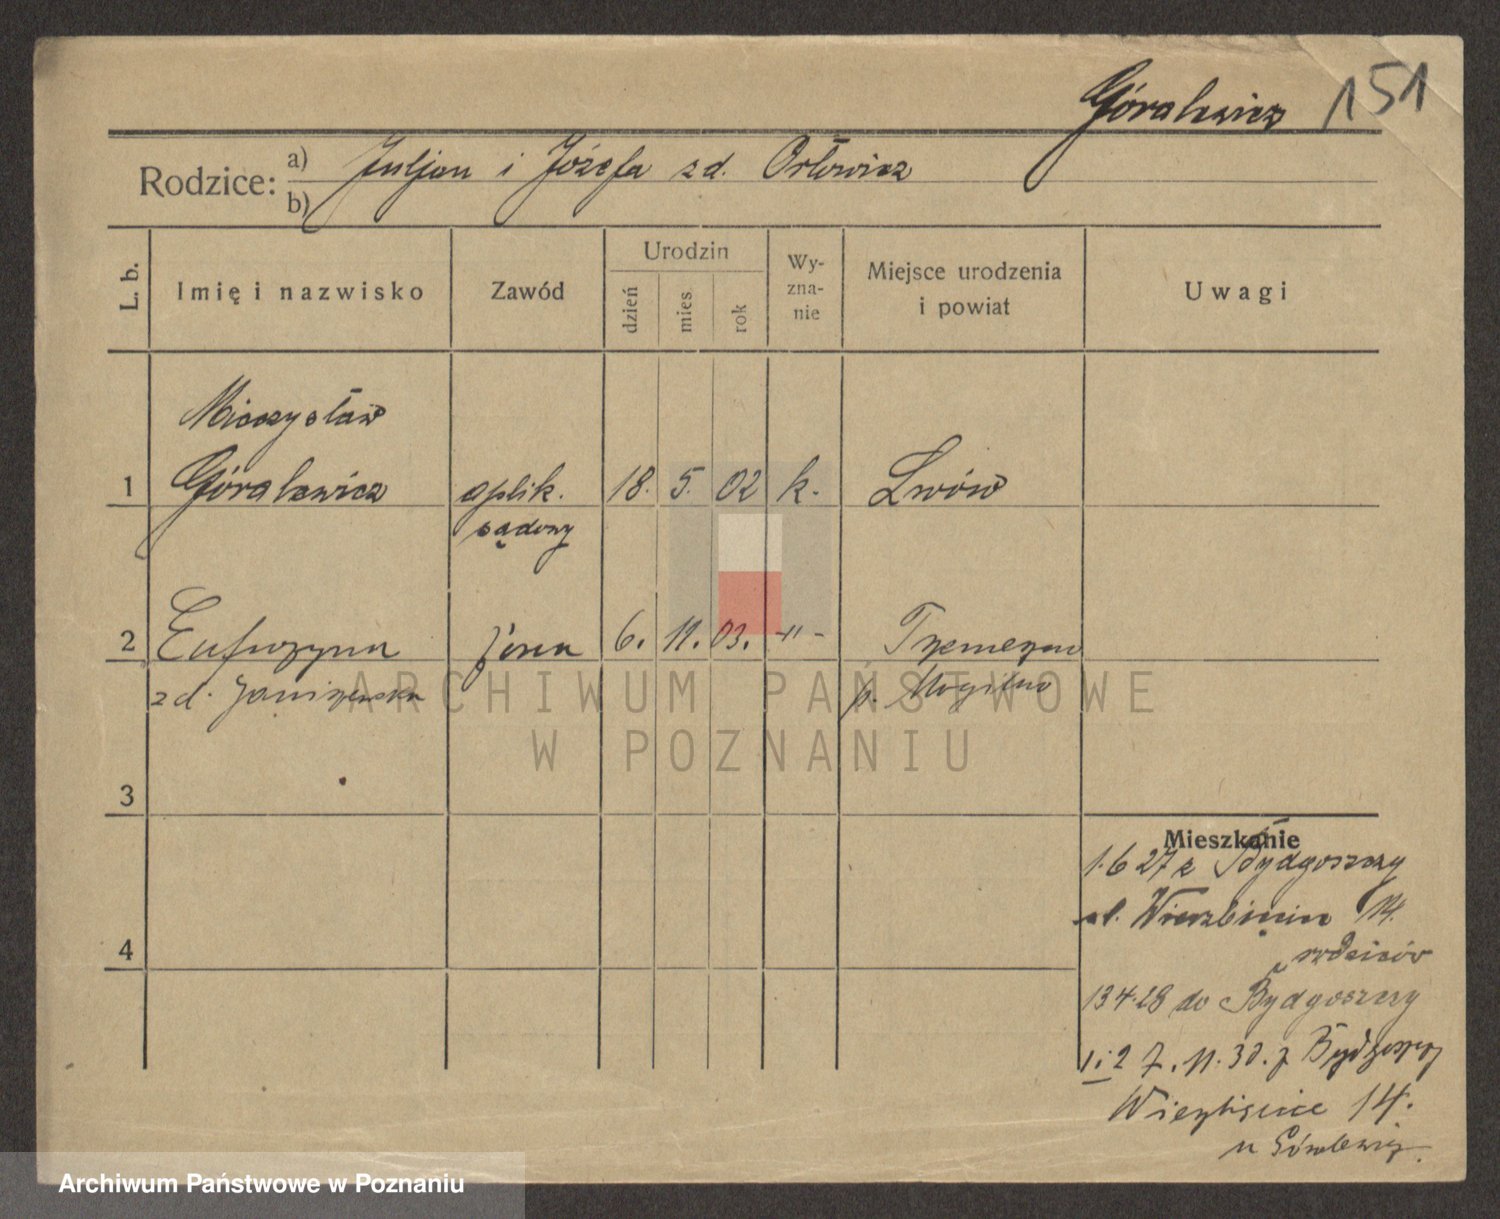 Góralewicz 151
Rodzice: a) Juljan i Józefa zd. Orłowicz
b)
L. b. Imię i nazwisko Zawód Urodzin dzień mies. rok Wy-zna-nie Miejsce urodzenia i powiat Uwagi
Mieczysław
1 Góralewicz aplik. 18. 5. 02 k. Lwów
sądowy
2 Eufrozyna żona 6. 11. 03. -"- Trzemeszno
zd. Janiszewska p. Mogilno
3
Mieszkanie
1.6 27 z Bydgoszczy
ul. Wierzbięcice 14.
rodziców
4
13 4.28 do Bydgoszczy
1 i 2 7. 11. 30. z Bydgoszczy
Wierzbięcice 14.
u Góralewicz.
ARCHIWUM PAŃSTWOWE
W POZNANIU
Archiwum Państwowe w Poznaniu